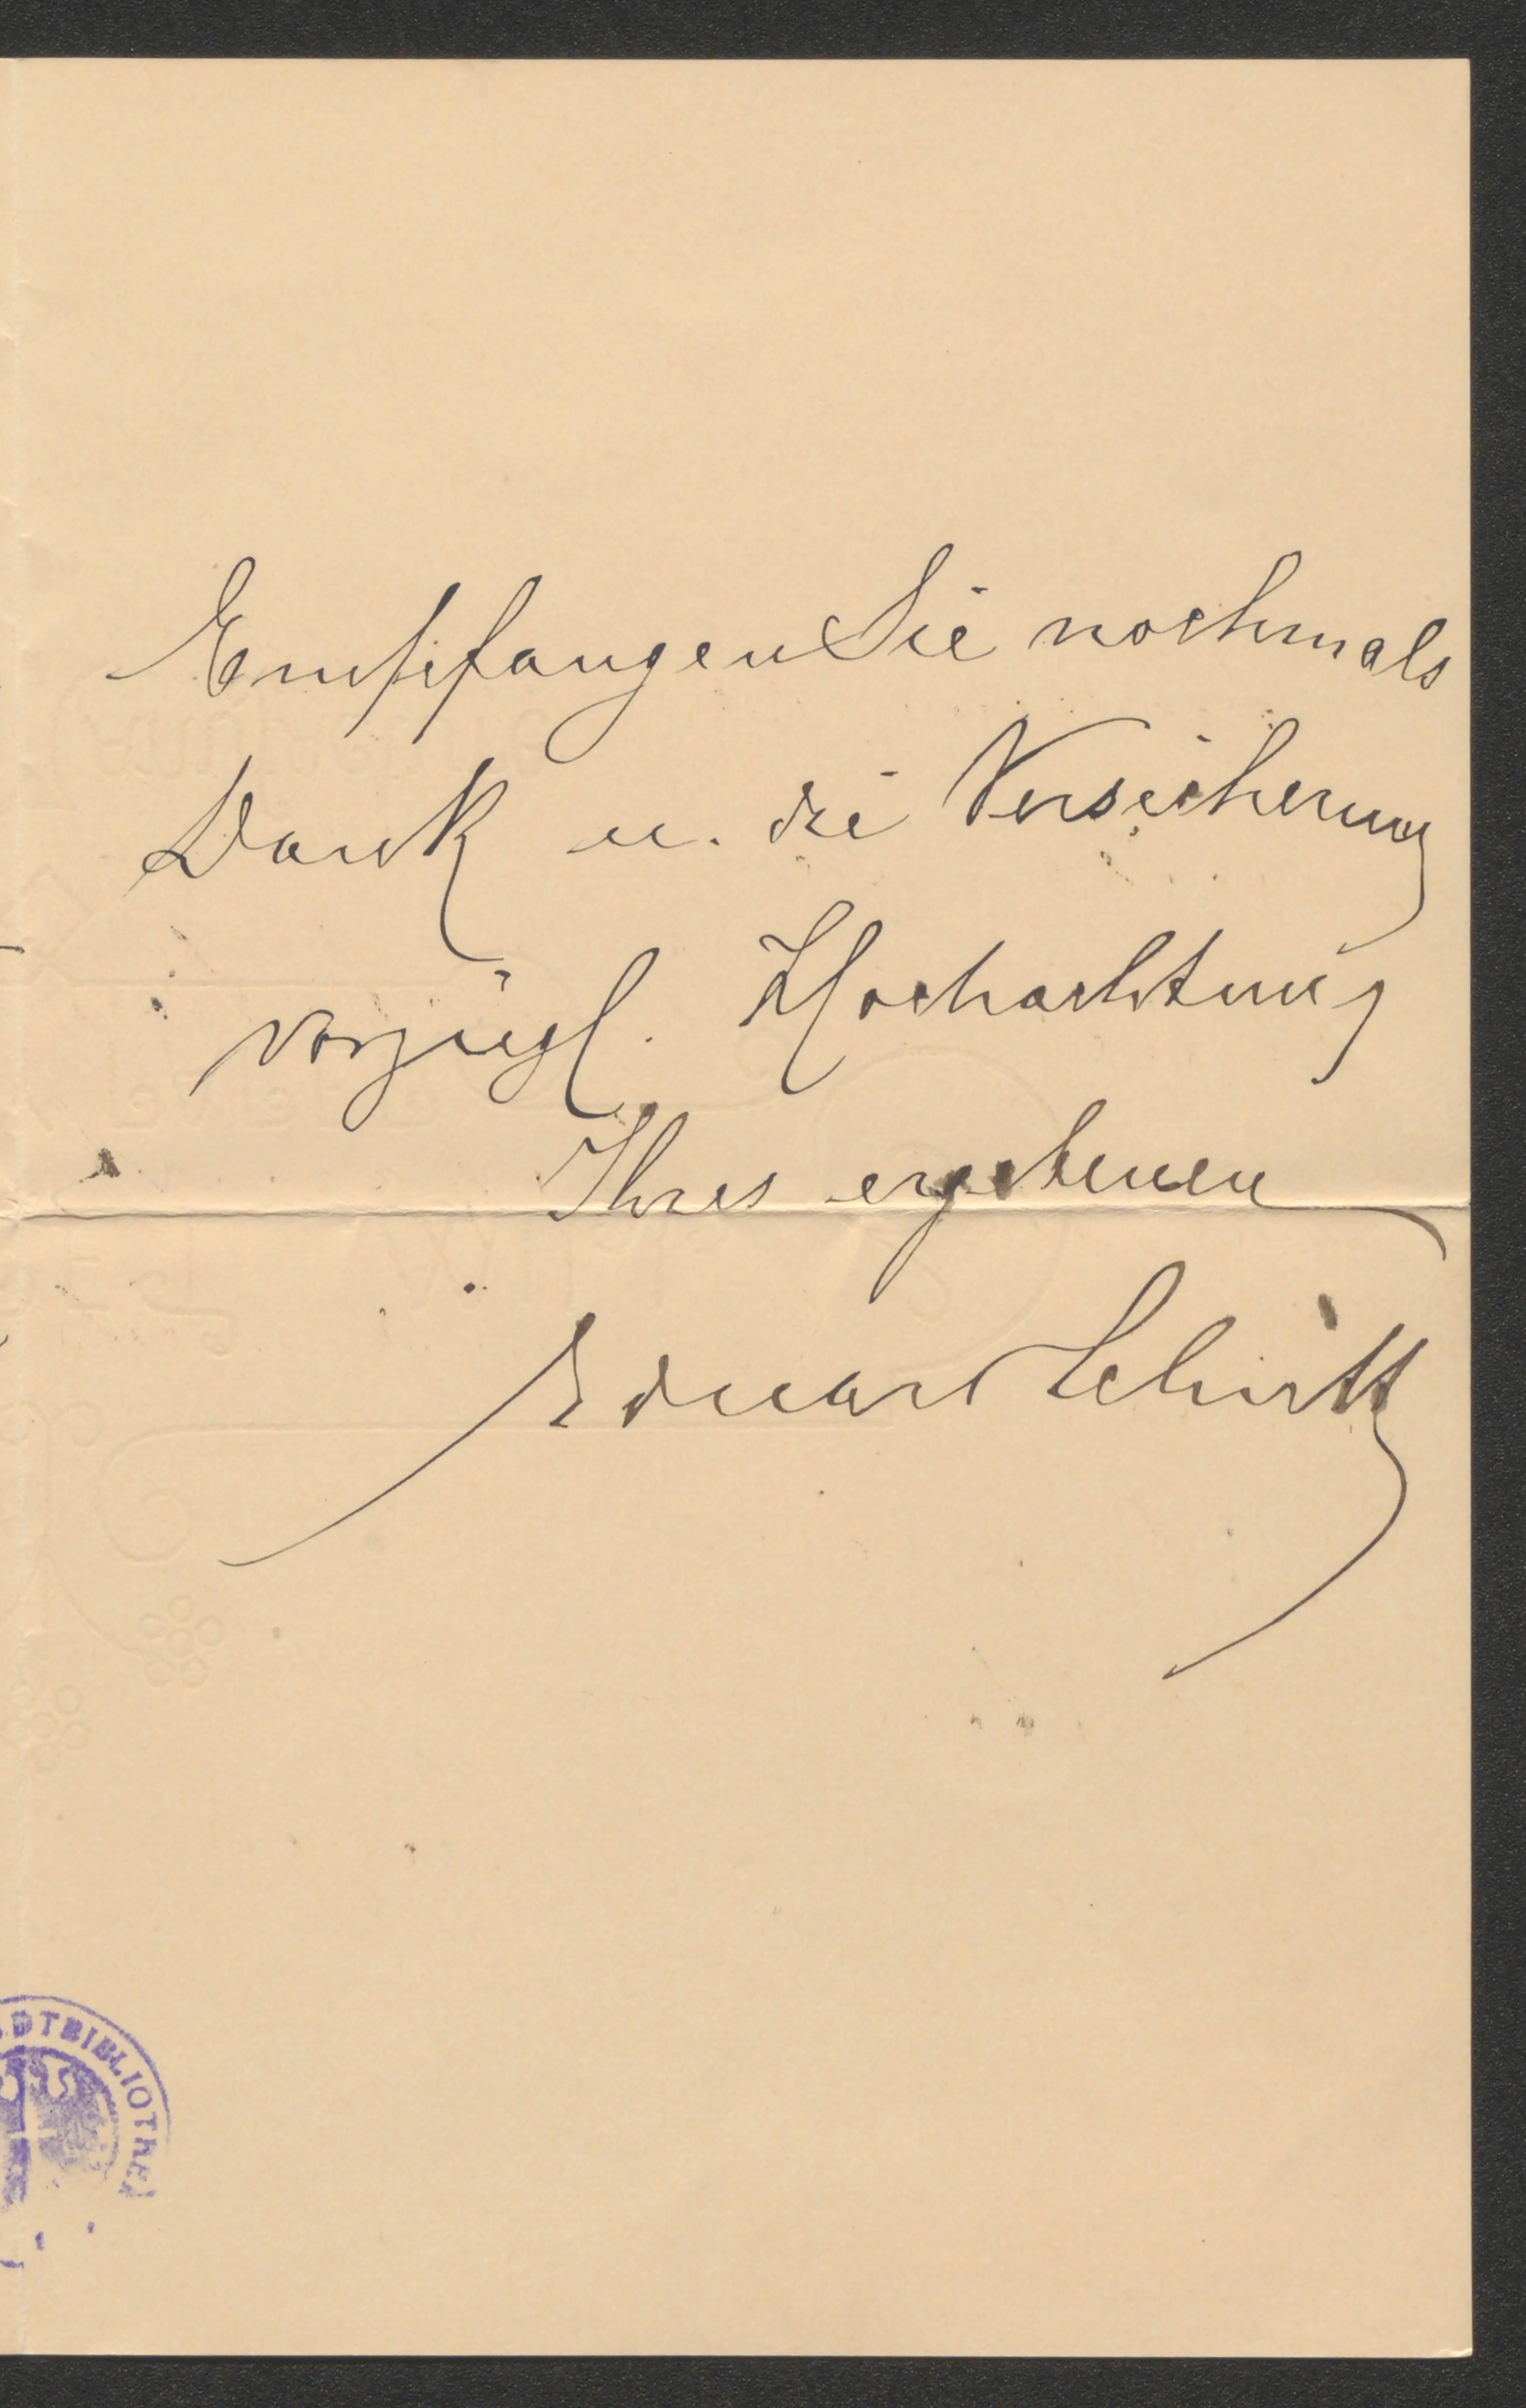 Empfangen Sie nochmals
Dank u. die Versicherung
vorzügl. Hochachtung
Ihres ergebenen
Eduard Schütt
DTBIBLIOTHE